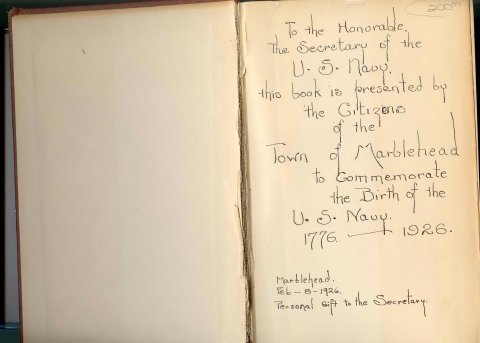 200⁰⁰
To the Honorable,
The Secretary of the
U. S. Navy.
this book is presented by
the Citizens
of the
Town of Marblehead
to Commemorate
the Birth of the
U. S. Navy.
1776. — 1926.
Marblehead.
Feb - 8 - 1926.
Personal Gift to the Secretary.